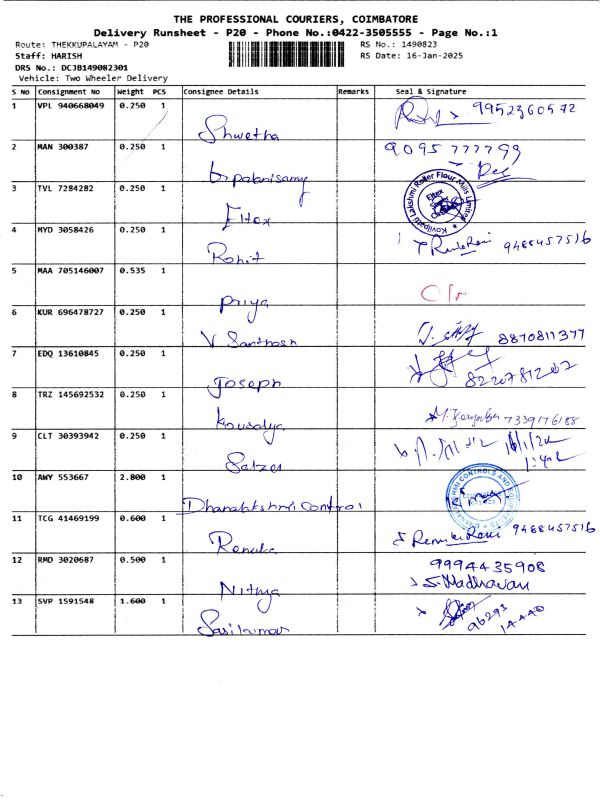 THE PROFESSIONAL COURIERS, COIMBATORE
Delivery Runsheet - P20 - Phone No.:0422-3505555 - Page No.:1
Route: THEKKUPALAYAM - P20 RS No.: 1490823
Staff: HARISH RS Date: 16-Jan-2025
DRS No.: DCJB149082301
Vehicle: Two Wheeler Delivery
S No Consignment No Weight PCS Consignee Details Remarks Seal & Signature
1 VPL 940668049 0.250 1 Shwetha 9952360572
2 MAN 300387 0.250 1 palanisamy 9095777799
3 TVL 7284282 0.250 1 Eltex Kovilpatti Lakshmi Roller Flour Mills Limited
4 MYD 3058426 0.250 1 Rohit 9488457516
5 MAA 705146007 0.535 1 priya
6 KUR 696478727 0.250 1 V Santhosh 8870811377
7 EDQ 13610845 0.250 1 Joseph 8220781202
8 TRZ 145692532 0.250 1 kousalya 7339176188
9 CLT 30393942 0.250 1
10 AWY 553667 2.800 1 Dhanalakshmi Control
11 TCG 41469199 0.600 1 Renuka 9488457516
12 RMD 3020687 0.500 1 Nithya 9994435908
S. Madhavan
13 SVP 1591548 1.600 1 Sasikumar 96293
14440